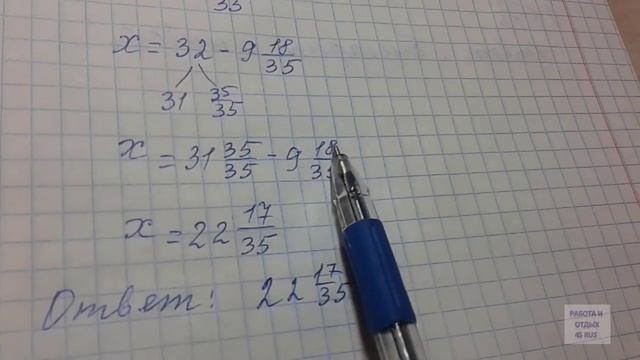 35
x = 32 - 9 18/35
31 35/35
x = 31 35/35 - 9 18/35
x = 22 17/35
Ответ: 22 17/35
РАБОТА И
ОТДЫХ
45 RUS